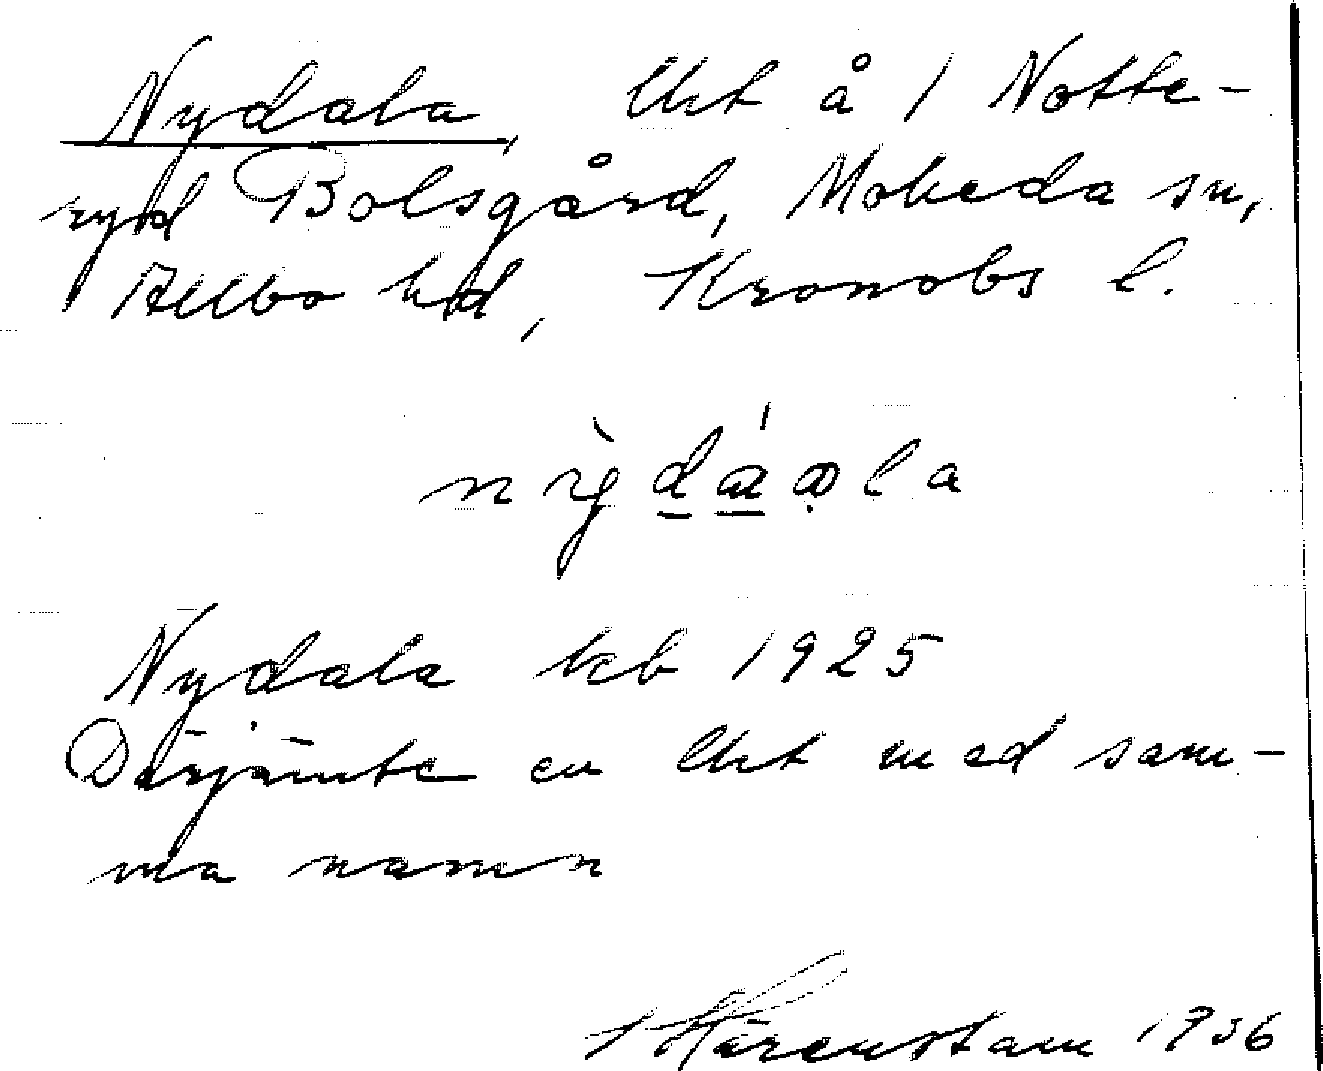 Nydala, lht å 1 Notte-
ryd Bolsgård, Moheda sn,
Allbo hd, Kronobs l.
Nydala kb 1925
Därjämte en lht med sam-
ma namn
Härenstam 1936